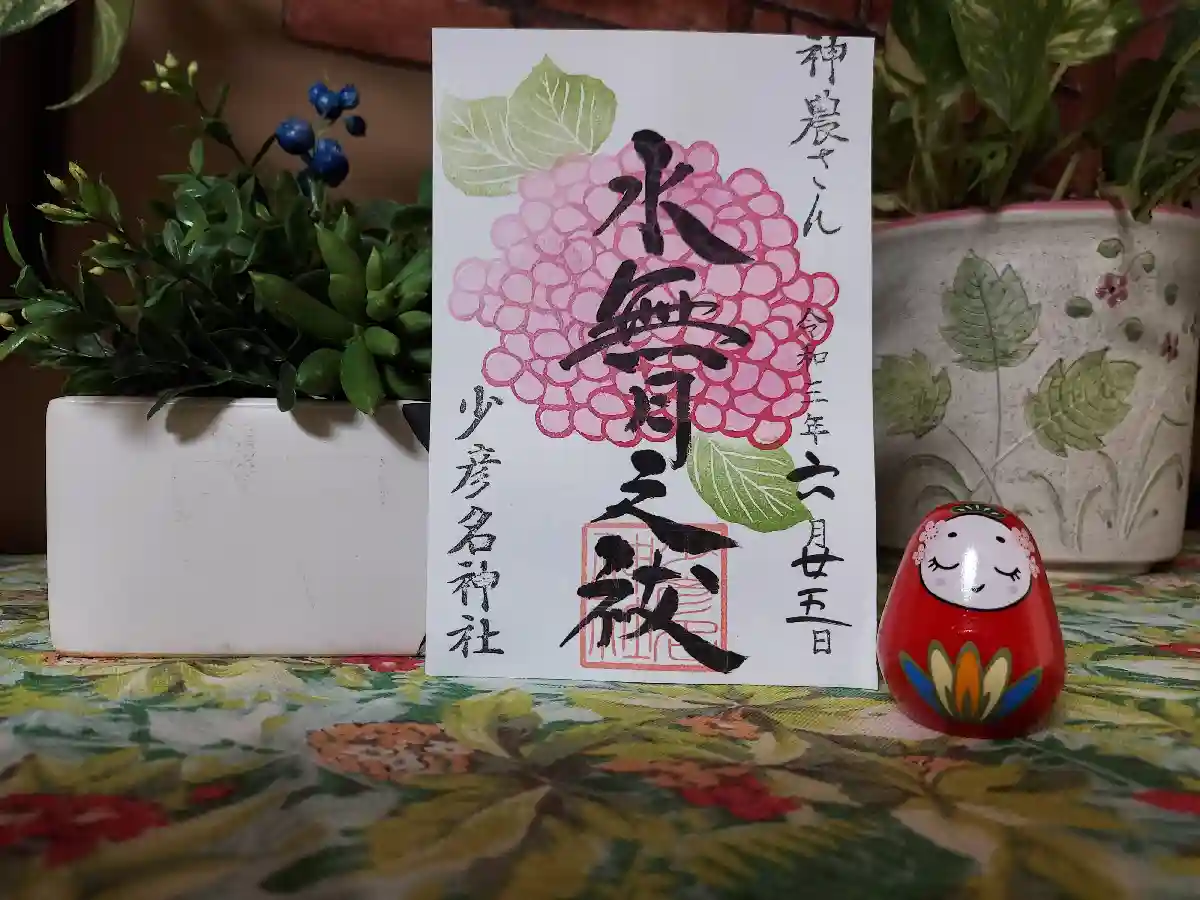 神農さん
令和三年六月廿五日
水無月之祓
少彦名神社